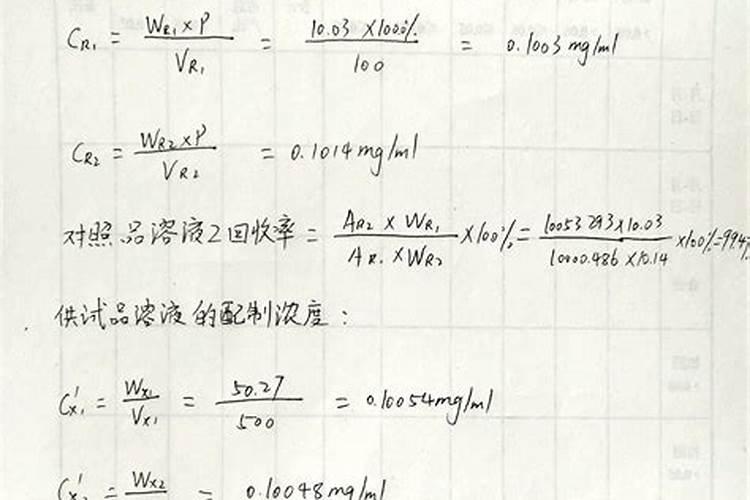 C_R1 = W_R1 × P / V_R1 = 10.03 × 100.0% / 100 = 0.1003 mg/ml
C_R2 = W_R2 × P / V_R2 = 0.1014 mg/ml
对照品溶液2回收率 = A_R2 × W_R1 / A_R1 × W_R2 × 100% = 10053293 × 10.03 / 10000.486 × 10.14 × 100% = 99.4%
供试品溶液的配制浓度:
C'_X1 = W_X1 / V_X1 = 50.27 / 500 = 0.10054 mg/ml
C'_X2 = W_X2 = 0.10048 mg/ml